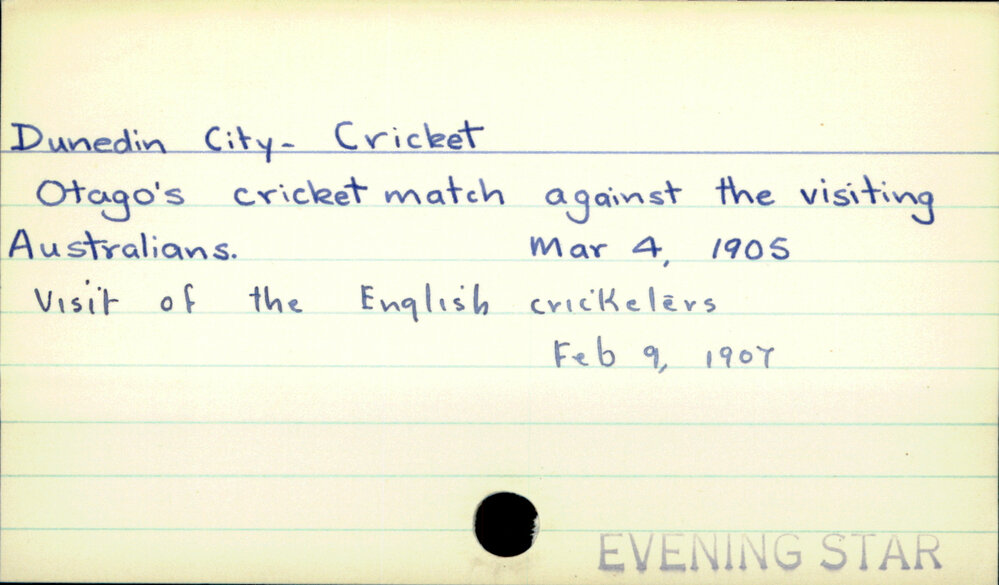 Dunedin City- Cricket
Otago's cricket match against the visiting
Australians. Mar 4, 1905
Visit of the English cricketers
Feb 9, 1907
EVENING STAR